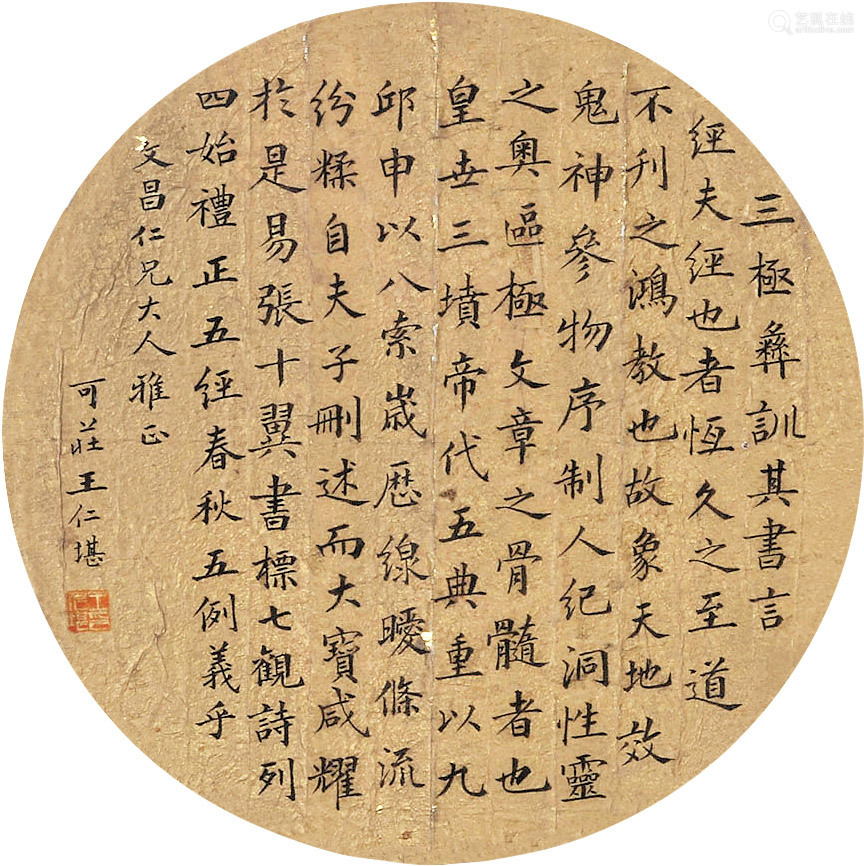 三極彝訓其書言
經夫經也者恆久之至道
不刋之鴻教也故象天地效
鬼神參物序制人紀洞性靈
之奧區極文章之骨髓者也
皇世三墳帝代五典重以九
邱申以八索嵗歷線曖條流
紛糅自夫子刪述而大寶咸耀
於是易張十翼書標七觀詩列
四始禮正五經春秋五例義乎
文昌仁兄大人雅正
可莊王仁堪
艺狐在线
artfoxlive.com